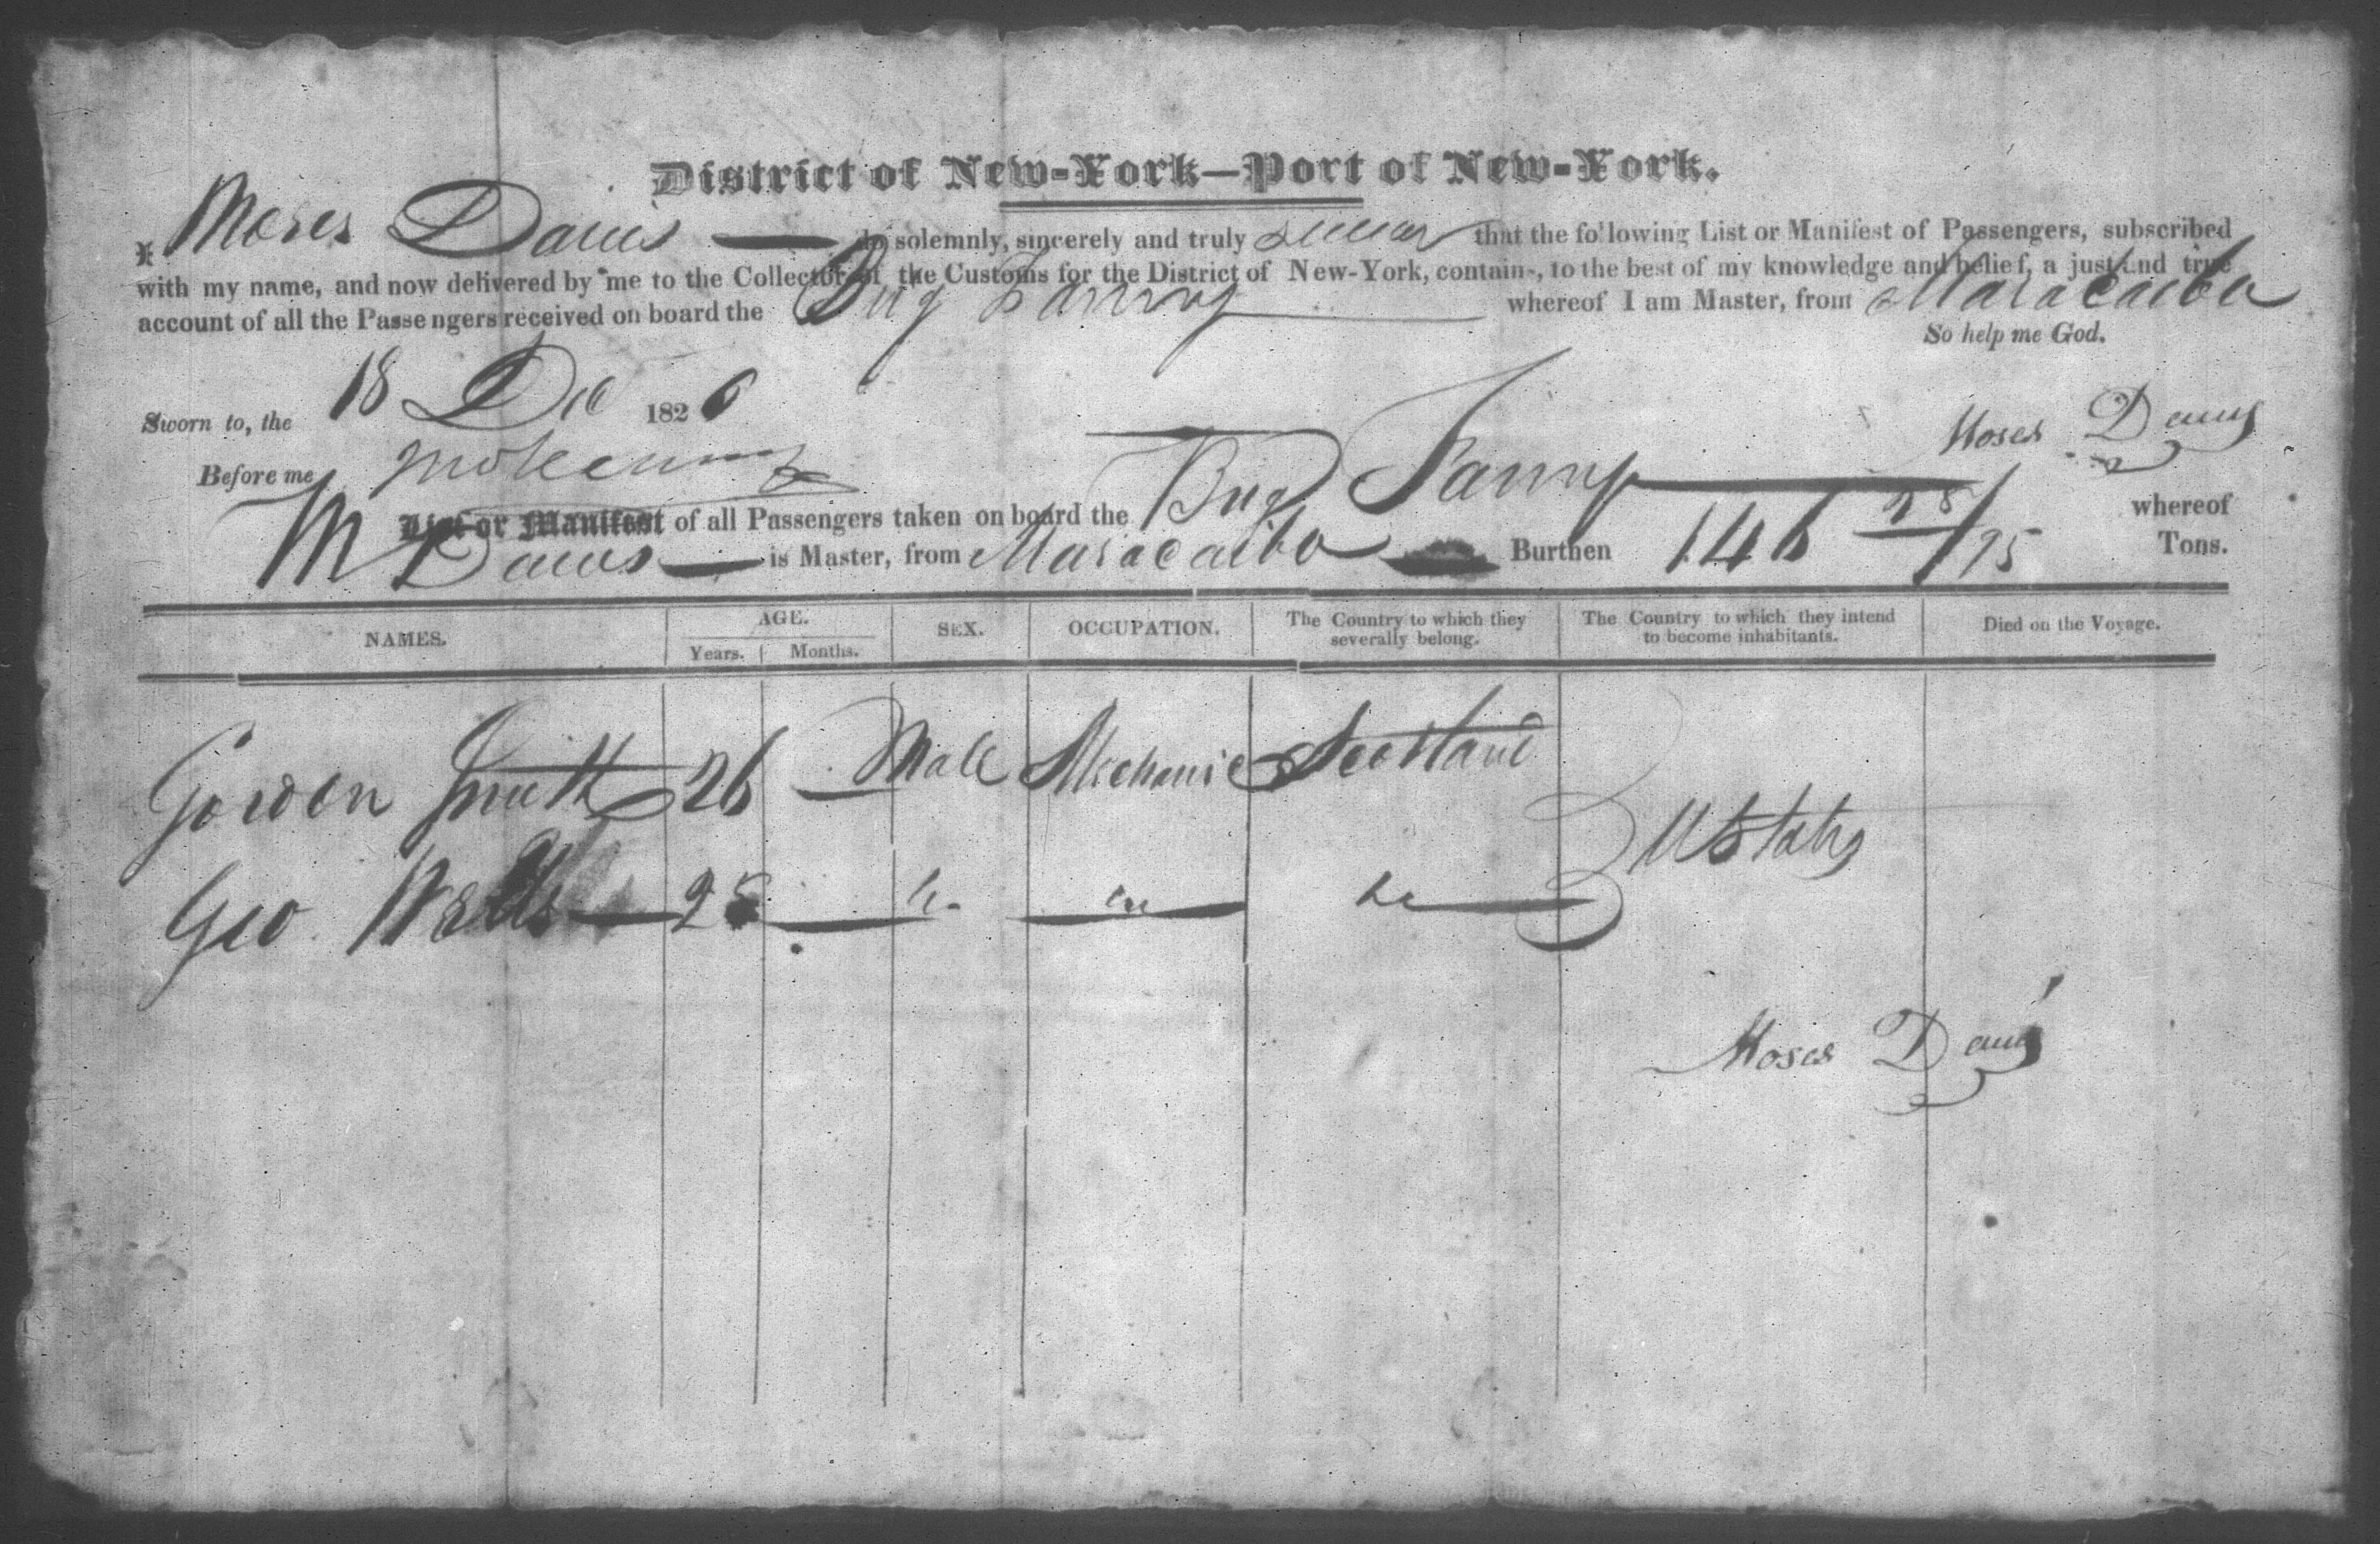 District of New-York—Port of New-York.
I Moses Davis do solemnly, sincerely and truly swear that the following List or Manifest of Passengers, subscribed
with my name, and now delivered by me to the Collector of the Customs for the District of New-York, contains, to the best of my knowledge and belief, a just and true
account of all the Passengers received on board the Brig Fanny whereof I am Master, from Maracaibo
So help me God.
Sworn to, the 18 Dec 1826
Moses Davis
Before me
List or Manifest of all Passengers taken on board the Brig Fanny whereof
M Davis is Master, from Maracaibo Burthen 146 28/95 Tons.
NAMES. AGE. SEX. OCCUPATION. The Country to which they severally belong. The Country to which they intend to become inhabitants. Died on the Voyage.
Years. Months.
Gordon Smith 26 Male Mechanic Scotland
UStates
Geo. Wells 28
Moses Davis